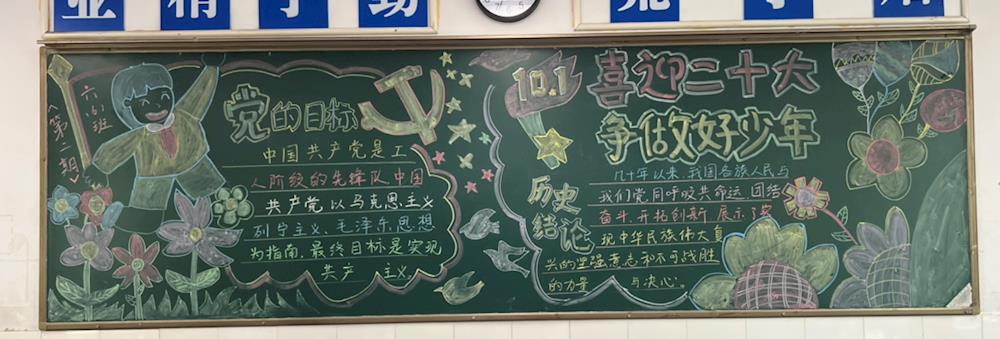 业 精 于 勤
荒 于 嬉
六(6)班
《第二期》
党的目标
中国共产党是工
人阶级的先锋队中国
共产党以马克思主义
列宁主义、毛泽东思想
为指南,最终目标是实现
共产主义。
10.1
喜迎二十大
争做好少年
历史
结论
几十年以来,我国各族人民与
我们党同呼吸共命运,团结
奋斗,开拓创新 展示了实
现中华民族伟大复
兴的坚强意志和不可战胜
的力量 与决心。